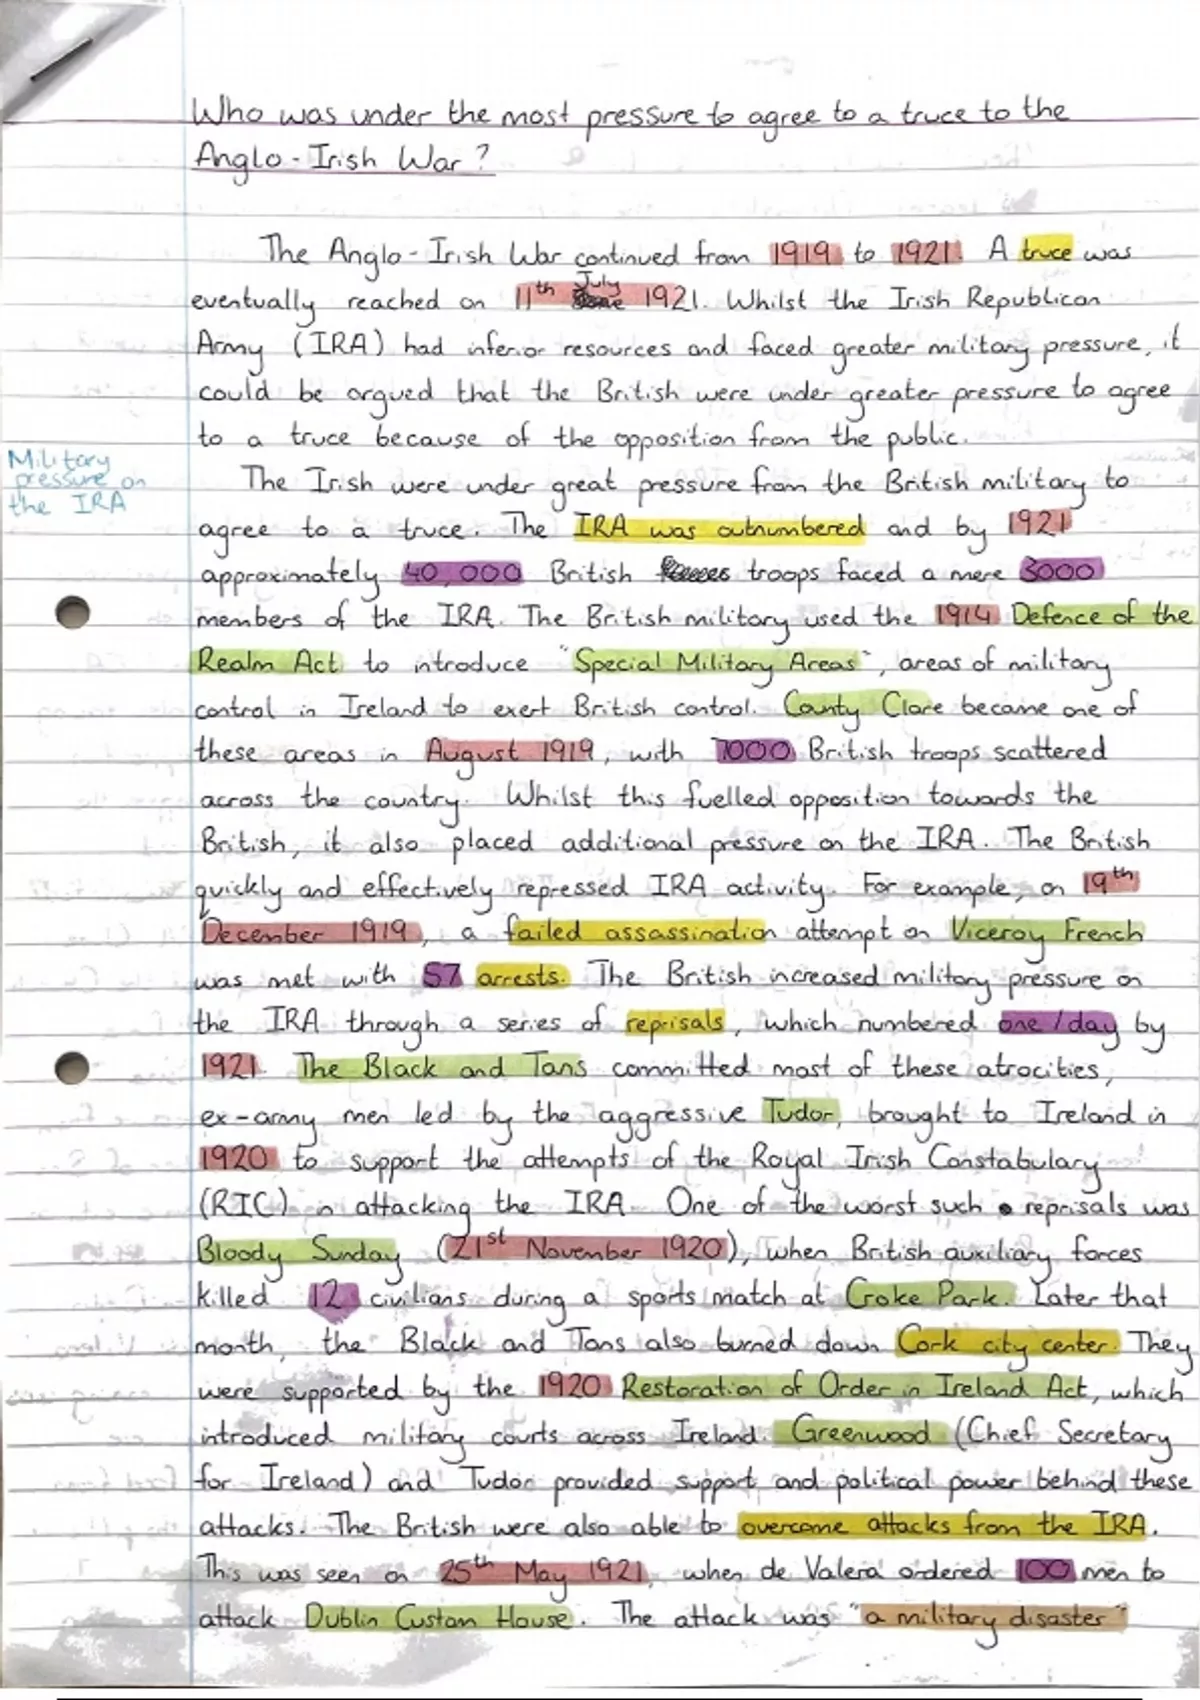 Who was under the most pressure to agree to a truce to the
Anglo-Irish War?
The Anglo-Irish War continued from 1919 to 1921. A truce was
eventually reached on 11th July 1921. Whilst the Irish Republican
Army (IRA) had inferior resources and faced greater military pressure, it
could be argued that the British were under greater pressure to agree
to a truce because of the opposition from the public.
Military
pressure on
the IRA
The Irish were under great pressure from the British military to
agree to a truce. The IRA was outnumbered and by 1921
approximately 40,000 British troops faced a mere 3000
members of the IRA. The British military used the 1914 Defence of the
Realm Act to introduce "Special Military Areas", areas of military
control in Ireland to exert British control. County Clare became one of
these areas in August 1919, with 7000 British troops scattered
across the country. Whilst this fuelled opposition towards the
British, it also placed additional pressure on the IRA. The British
quickly and effectively repressed IRA activity. For example, on 19th
December 1919, a failed assassination attempt on Viceroy French
was met with 57 arrests. The British increased military pressure on
the IRA through a series of reprisals, which numbered one/day by
1921. The Black and Tans committed most of these atrocities,
ex-army men led by the aggressive Tudor, brought to Ireland in
1920 to support the attempts of the Royal Irish Constabulary
(RIC) in attacking the IRA. One of the worst such reprisals was
Bloody Sunday (21st November 1920), when British auxiliary forces
killed 12 civilians during a sports match at Croke Park. Later that
month, the Black and Tans also burned down Cork city center. They
were supported by the 1920 Restoration of Order in Ireland Act, which
introduced military courts across Ireland. Greenwood (Chief Secretary
for Ireland) and Tudor provided support and political power behind these
attacks. The British were also able to overcome attacks from the IRA.
This was seen on 25th May 1921, when de Valera ordered 100 men to
attack Dublin Custom House. The attack was "a military disaster"